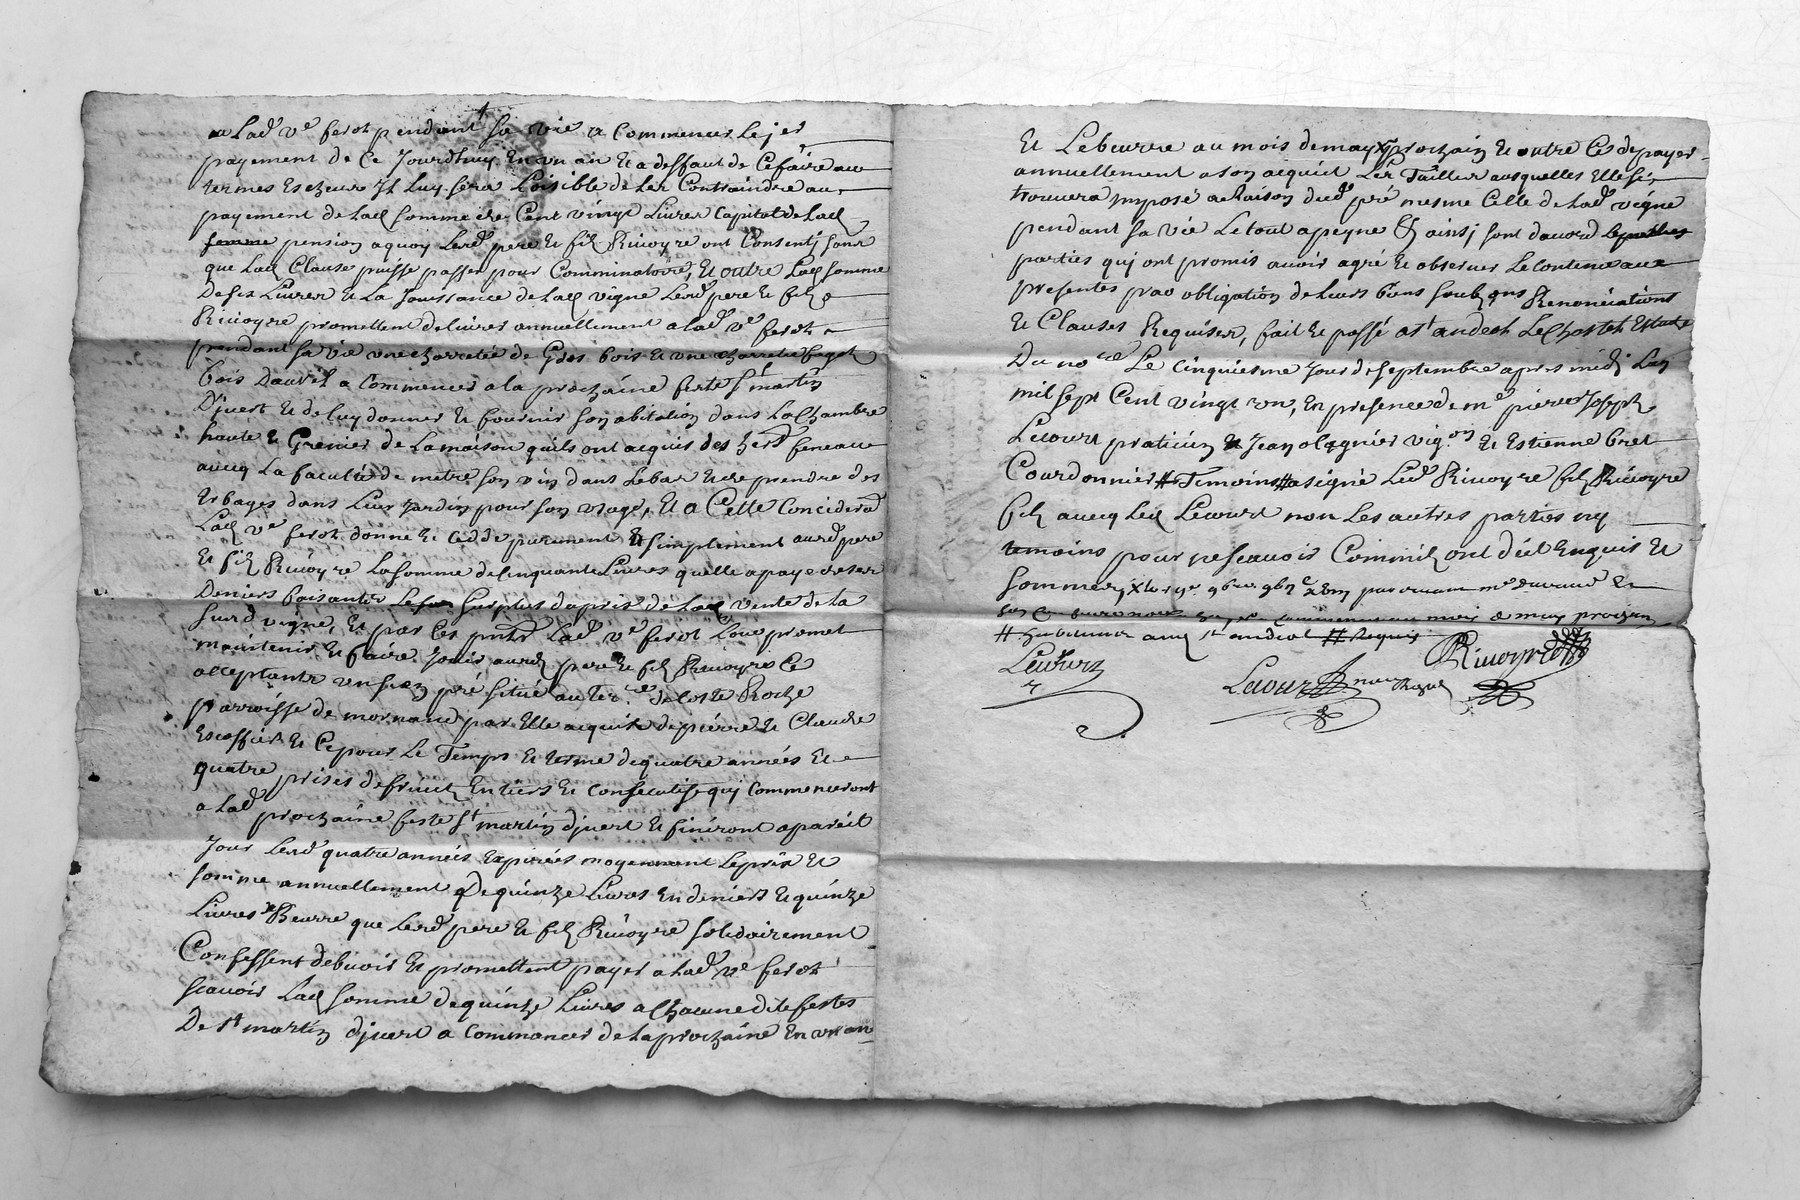 a Lad. ve ferot pendant sa vie a Commencer le jer
payement de Ce Jourdhuy En vn an Et a deffaut de Ce faire au
termes Escheux Il Luy sera Loisible de Les Contraindre au
payement de lad. somme de Cent vingt Livres Capital de lad.
femme pension a quoy Lesd. pere Et fils Rivoyre ont Consenti sans
que Lad. Clause puisse passer pour Comminatoire, Et outre Lad. somme
De six Livres Et La Jouissance de lad. vigne Lesd. pere Et fils
Rivoyre promettent delivrer annuellement a lad. ve ferot
pendant sa vie vne charretée de Gros bois Et vne charretée fagot
bois Dauril a Commencer a la prochaine feste st martin
D'jvert Et de luy donner Et fournir son abitation dans La Chambre
haute Et Grenier de La maison quils ont acquis des hers feneau
aueq La faculté de metre son vin dans Lebas Et de prendre des
Erbages dans Leur Jardin pour son vsage, Et a Cette Considerãon
Lad. ve ferot donne Et Cedde purement Et simplement ausd. pere
Et fils Rivoyre La somme de Cinquante Livres quelle a paye de ses
Deniers faisant Le surplus du prix de Lad. vente de la
susd. vigne, Et par Ces pntes Lad. ve ferot Loue promet
maintenir Et faire Jouir ausd. pere Et fils Rivoyre Ce
acceptants vn sien pré situé au terre. De Coste Roche
parroisse de mornand par Elle acquis de pierre Et Claude
Escoffier Et Ce pour Le Temps Et terme de quatre années Et
quatre prises de fruict Entiers Et Consecutifs qui Commenceront
a lad. prochaine feste st martin djvert Et finiront a pareil
Jour Lesd. quatre années Expirées moyennant Le prix Et
somme annuellement De quinze Livres En deniers Et quinze
Livres Beurre que Lesd. pere Et fils Rivoyre solidairement
Confessent debuoir Et promettent payer a Lad. ve ferot
scauoir Lad. somme de quinze Livres a Chacune dite festes
De st martin djvert a Commancer de La prochaine En vn an
Et Lebeurre au mois de may prochain Et outre Ce de payer
annuellement a son acquit Les Tailles ausquelles Elle se
trouuera jmposé a Raison dud. pré mesme Celle de Lad. vigne
pendant sa vie Le tout a peyne Et ainsj sont d'acord Les parties
parties quj ont promis auoir agré Et obseruer Le Contenu aux
presentes par obligation de leurs biens soubz ons Renonciations
Et Clauses Requises, fait Et passé a st andeol Le Chasteh Estude
Du nore Le Cinquiesme Jour de Septembre apres midi Lan
mil sept Cent vingt vn, En presence de me pierre Joseph
Lecourt praticien Et Jean olagnier vigon Et Estienne bret
Courdonnier # Temoins # a signé Led. Rivoyre fils Rivoyre
fils aueq Led. Lecourt non Les autres parties ny
temoins pour ne scauoir Comme ils ont dict Enquis Et
Sommes,
# aud. st andeol # Requis
Lecourt
Lecourt
Rivoyre